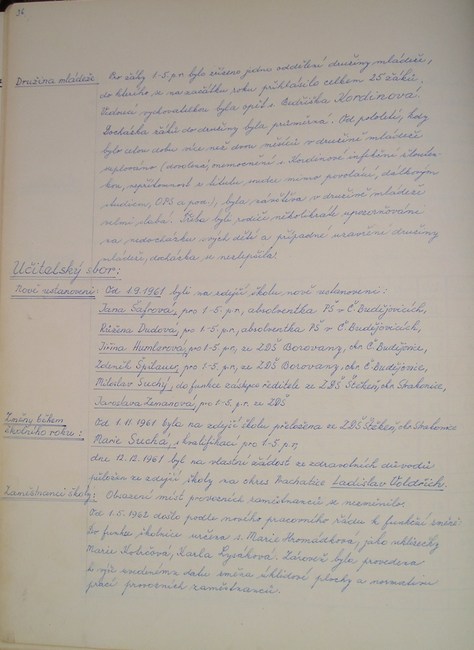 36
Družina mládeže. Pro žáky 1.-5. p.r. bylo zřízeno jedno oddělení družiny mládeže,
do kterého se na začátku roku přihlásilo celkem 25 žáků.
Vedoucí vychovatelkou byla opět s. Kordinová.
Docházka žáků do družiny byla průměrná. Od pololetí, kdy
bylo dva více než dvou měsíců v družině mládeže
(dovolená, onemocnění s. Kordinové infekční žlouten-
kou, nepřítomnost s. mimo povolání, dálkovým
studiem, OPS a pod.), byla návštěva v družině mládeže
velmi slabá. Třeba že byli rodiče několikráte upozorňováni
na nedocházku svých dětí a případné uzavření družiny
mládeže, docházka se nezlepšila.
Učitelský sbor:
Nově ustanovení Od 1.9.1961 byli na zdejší školu nově ustanoveni:
Jana Šafrová, pro 1.-5. p.r., absolventka PŠ v Č. Budějovicích,
Růžena Dudová pro 1.-5. p.r., absolventka PŠ v Č. Budějovicích,
Jiřina Humlerová, pro 1.-5. p.r., ze ZDŠ Borovany, okr. Č. Budějovice,
Zdeněk Špilauer, pro 1.-5. p.r., ze ZDŠ Borovany, okr. Č. Budějovice,
Miloslav Suchý, do funkce zástupce ředitele ze ZDŠ Štěkeň, okr. Strakonice,
Jaroslava Zemanová, pro 1.-5. p.r. ze ZDŠ
Změny během Od 1.11.1961 byla na zdejší školu přeložena ze ZDŠ Štěkeň, okr. Strakonice
školního roku: Marie Suchá, s kvalifikací pro 1.-5. p.r.,
dne 12.12.1961 byl na vlastní žádost ze zdravotních důvodů
přeložen ze zdejší školy na okres Prachatice Ladislav Voldřich.
Zaměstnanci školy: Obsazení míst provozních zaměstnanců se nezměnilo.
Od 1.5.1962 došlo podle nového pracovního řádu k funkční změně:
Do funkce školnice určena s. Marie Hromádková, jako uklízečky
Marie Kolářová, Karla Zároveň byla provedena
k výše uvedenému datu změna úklidové plochy a normativu
prací provozních zaměstnanců.